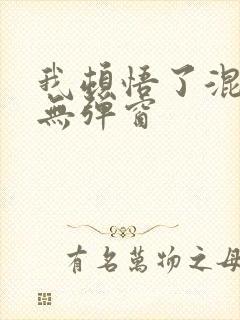 我頓悟了混
無弹窗
有名萬物之母